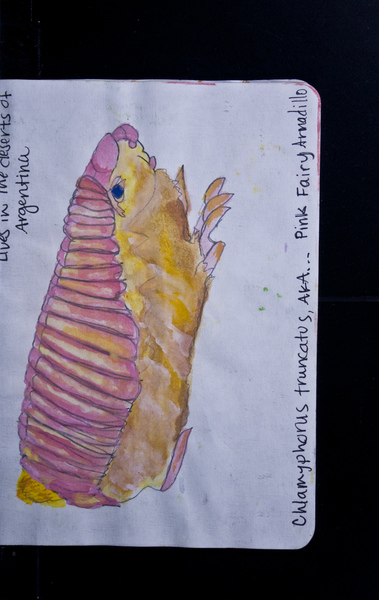 Lives in the deserts of
Argentina
Chlamyphorus truncatus, AKA... Pink Fairy Armadillo